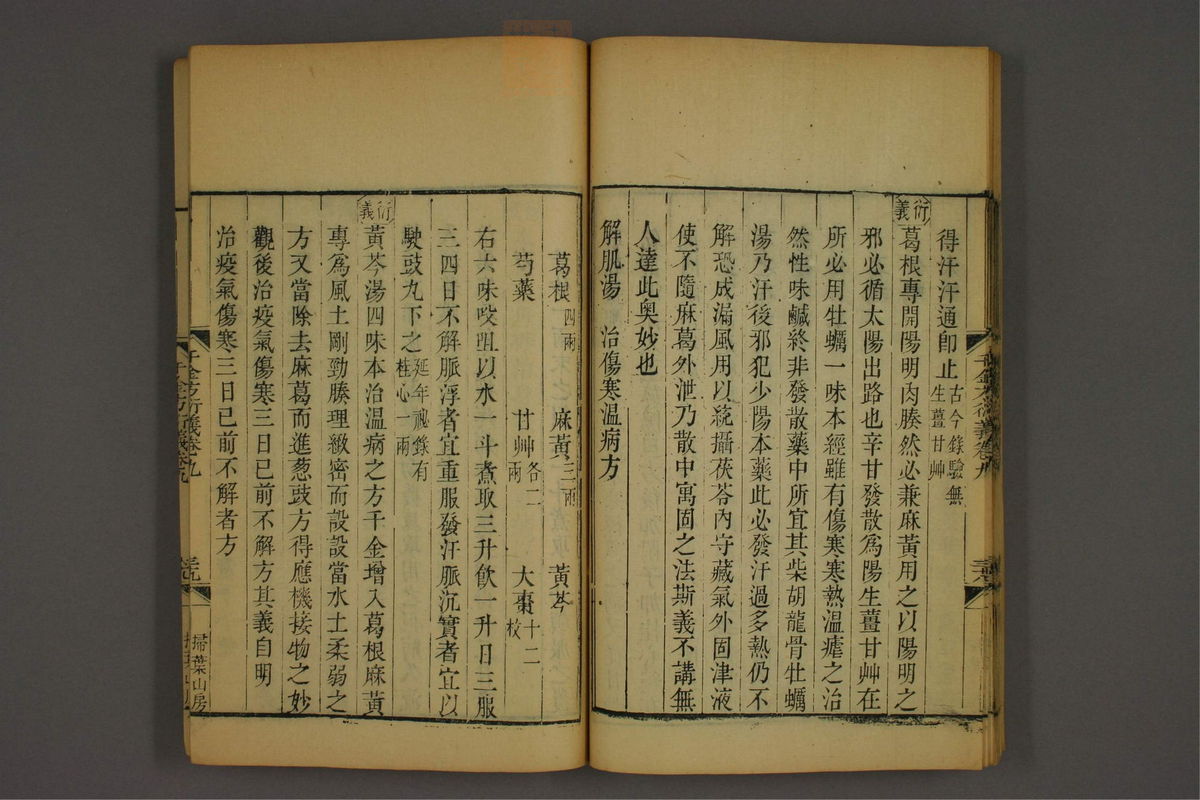 得汗汗通卽止古今錄驗無生薑甘艸
衍義
葛根專開陽明肉腠然必兼麻黃用之以陽明之
邪必循太陽出路也辛甘發散爲陽生薑甘艸在
所必用牡蠣一味本經雖有傷寒寒熱溫瘧之治
然性味鹹終非發散藥中所宜其柴胡龍骨牡蠣
湯乃汗後邪犯少陽本藥此必發汗過多熱仍不
解恐成漏風用以統攝茯苓內守藏氣外固津液
使不隨麻葛外泄乃散中寓固之法斯義不講無
人達此奧妙也
解肌湯　治傷寒溫病方
葛根四兩　麻黃三兩　黃芩
芍藥　甘艸各二兩　大棗十二枚
右六味㕮咀以水一斗煮取三升飮一升日三服
三四日不解脈浮者宜重服發汗脈沉實者宜以
駛豉丸下之延年祕錄有桂心一兩
衍義
黃芩湯四味本治溫病之方千金增入葛根麻黃
專爲風土剛勁腠理緻密而設設當水土柔弱之
方又當除去麻葛而進葱豉方得應機接物之妙
觀後治疫氣傷寒三日已前不解方其義自明
治疫氣傷寒三日已前不解者方
千金方衍義卷九
掃葉山房